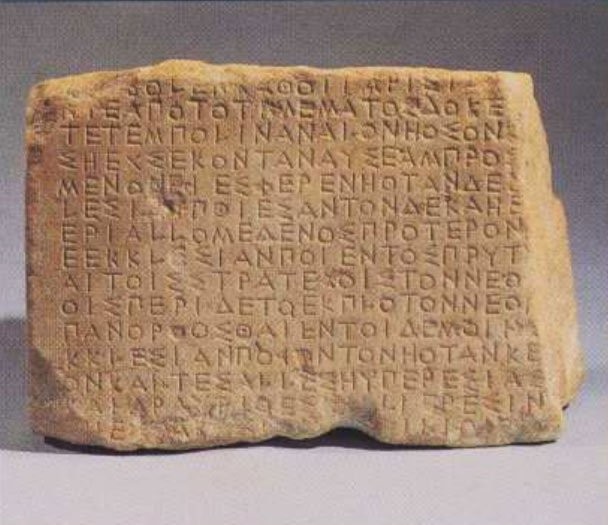 ΝΙΕΑΠΟΤΟΤΙΜΕΜΑΤΟΣΔΟΚΕ
ΤΕΤΕΜΠΟΛΙΝΑΝΑΛΟΝΗΟΣΟΝ
ΣΗΕΧΣΕΚΟΝΤΑΝΑΥΣΕΑΜΠΡΟ
ΜΕΝΟΙΣΕΣΦΕΡΕΝΗΟΤΑΝΔΕ
ΛΕΣΙΑΝΠΟΙΕΣΑΝΤΟΝΔΕΚΑΗΕ
ΕΡΙΑΛΛΟΜΕΔΕΝΟΣΠΡΟΤΕΡΟΝ
ΕΕΚΚΛΕΣΙΑΝΠΟΙΕΝΤΟΣΠΡΥΤ
ΑΙΤΟΙΣΣΤΡΑΤΕΛΟΙΣΤΟΝΝΕΟ
ΟΙΣΠΕΡΙΔΕΤΟΕΚΠΛΟΤΟΝΝΕΟ
ΠΑΝΟΡΘΟΣΘΑΙΕΝΤΟΙΔΕΜΟΙ
ΚΚΛΕΣΙΑΝΠΟΙΟΝΤΟΝΗΟΤΑΝΚΕ
ΟΝΚΑΙΤΕΣΑΛΛΕΣΗΥΠΕΡΕΣΙΑΣ